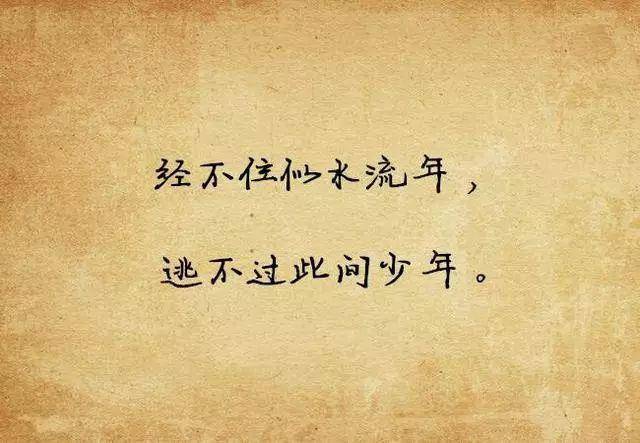 经不住似水流年，
逃不过此间少年。